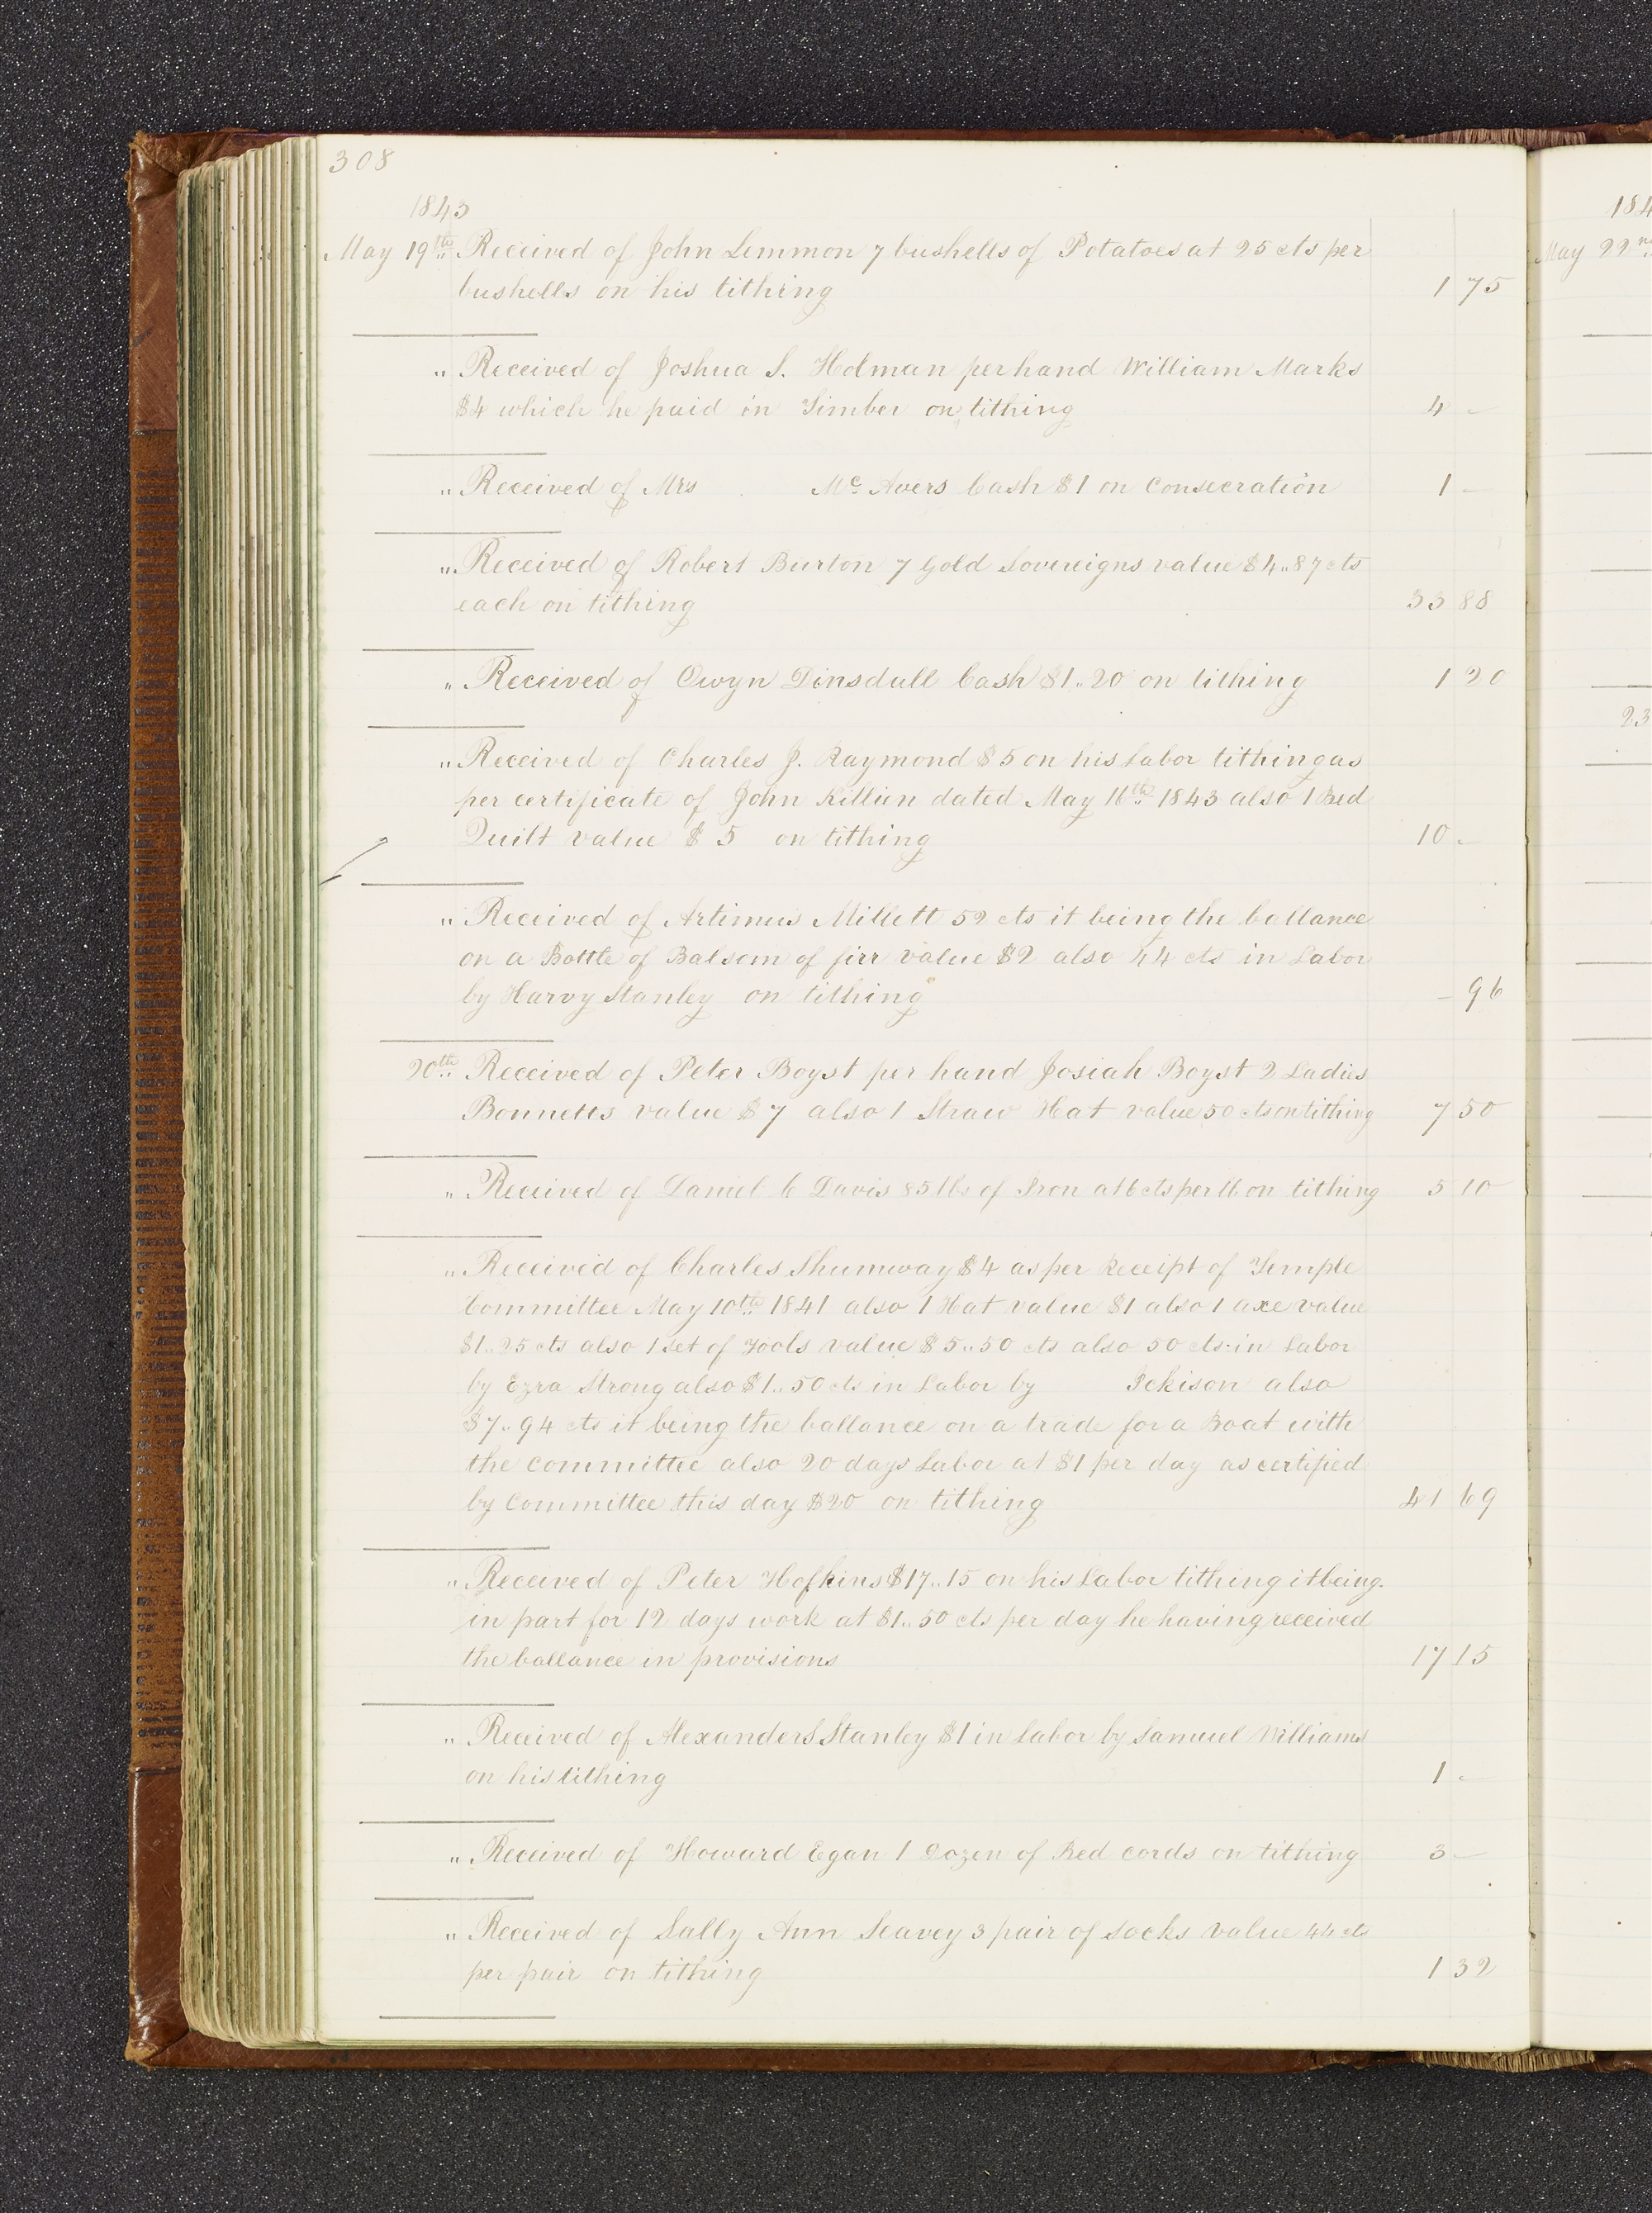 308
1843
May 19th Received of John Lemmon 7 bushells of Potatoes at 25 cts per
bushells on his tithing 1 75
" Received of Joshua S. Holman per hand William Marks
$4 which he paid in Timber on tithing 4 -
" Received of Mrs Mc Avers Cash $1 on Consecration 1 -
" Received of Robert Burton 7 Gold Sovereigns value $4..87 cts
each on tithing 33 88
" Received of Owyn Dinsdall Cash $1..20 on tithing 1 20
" Received of Charles J. Raymond $5 on his Labor tithing as
per certificate of John Killien dated May 16th 1843 also 1 Bed
Quilt value $5 on tithing 10 -
" Received of Artimus Millett 52 cts it being the ballance
on a Bottle of Balsom of firr value $2 also 44 cts in Labor
by Harvy Stanley on tithing - 96
20th Received of Peter Boyst per hand Josiah Boyst 2 Ladies
Bonnetts value $7 also 1 Straw Hat value 50 cts on tithing 7 50
" Received of Daniel C Davis 85 lbs of Iron at 6 cts per lb on tithing 5 10
" Received of Charles Shumway $4 as per Receipt of Temple
Committee May 10th 1841 also 1 Hat value $1 also 1 axe value
$1..25 cts also 1 set of Tools value $5..50 cts also 50 cts in Labor
by Ezra Strong also $1..50 cts in Labor by Ickison also
$7..94 cts it being the ballance on a trade for a Boat with
the committee also 20 days Labor at $1 per day as certified
by Committee this day $20 on tithing 41 69
" Received of Peter Hofkins $17..15 on his Labor tithing it being
in part for 12 days work at $1..50 cts per day he having received
the ballance in provisions 17 15
" Received of Alexander S Stanley $1 in Labor by Samuel Williams
on his tithing 1 -
" Received of Howard Egan 1 Dozen of Bed cords on tithing 3 -
" Received of Sally Ann Seavey 3 pair of socks value 44 cts
per pair on tithing 1 32
184
May 22nd
23